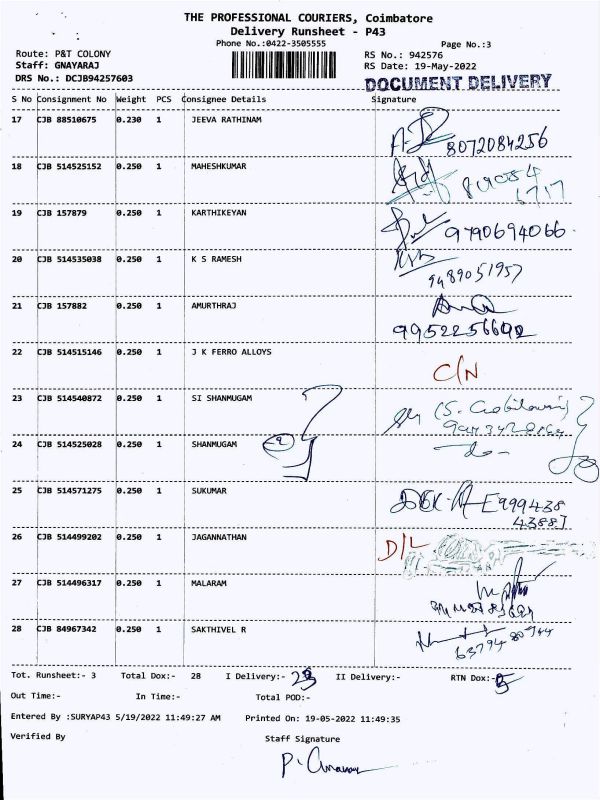 THE PROFESSIONAL COURIERS, Coimbatore
Delivery Runsheet - P43
Phone No.:0422-3505555
Page No.:3
Route: P&T COLONY
RS No.: 942576
Staff: GNAYARAJ
RS Date: 19-May-2022
DRS No.: DCJB94257603
DOCUMENT DELIVERY
S No Consignment No Weight PCS Consignee Details Signature
17 CJB 88510675 0.230 1 JEEVA RATHINAM
8072084256
18 CJB 514525152 0.250 1 MAHESHKUMAR
19 CJB 157879 0.250 1 KARTHIKEYAN
9790694066
20 CJB 514535038 0.250 1 K S RAMESH
9489051957
21 CJB 157882 0.250 1 AMURTHRAJ
9952256692
22 CJB 514515146 0.250 1 J K FERRO ALLOYS
C/N
23 CJB 514540872 0.250 1 SI SHANMUGAM
24 CJB 514525028 0.250 1 SHANMUGAM
-do-
25 CJB 514571275 0.250 1 SUKUMAR
999438
43887
26 CJB 514499202 0.250 1 JAGANNATHAN
D/L
27 CJB 514496317 0.250 1 MALARAM
28 CJB 84967342 0.250 1 SAKTHIVEL R
6379480944
Tot. Runsheet:- 3 Total Dox:- 28 I Delivery:- 23 II Delivery:- RTN Dox:- 5
Out Time:- In Time:- Total POD:-
Entered By :SURYAP43 5/19/2022 11:49:27 AM Printed On: 19-05-2022 11:49:35
Verified By Staff Signature